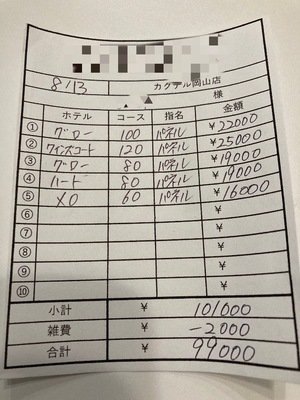 8/13 カクテル岡山店
様
ホテル コース 指名 金額
① グロー 100 パネル ¥22000
② ワインズコート 120 パネル ¥25000
③ グロー 80 パネル ¥19000
④ ハート 80 パネル ¥19000
⑤ XO 60 パネル ¥16000
⑥ ¥
⑦ ¥
⑧ ¥
⑨ ¥
⑩ ¥
小計 ¥ 101000
雑費 ¥ -2000
合計 ¥ 99000